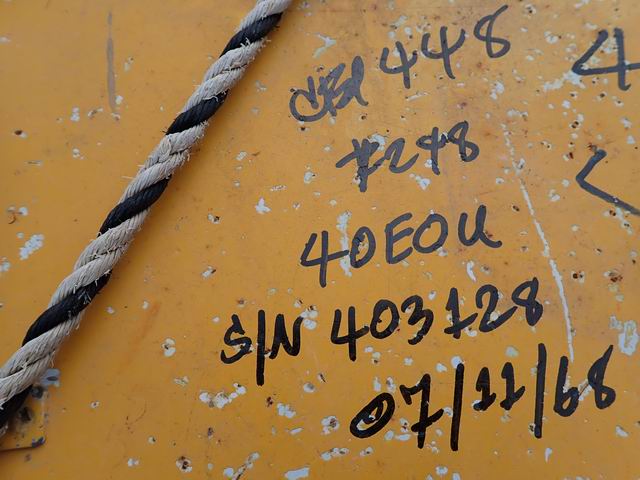 448
7248
40EOU
S/N 403128
07/11/68